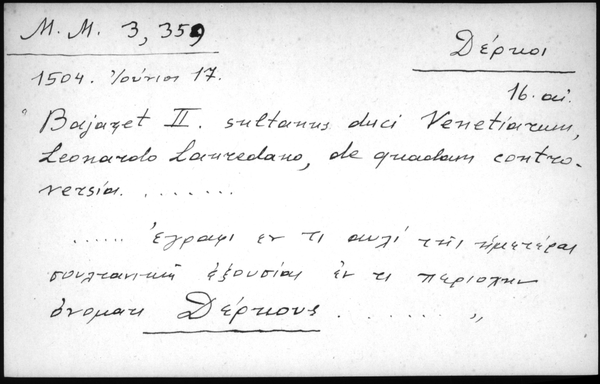 M. M. 3, 359
Δέρκοι
1504. Ἰούνιος 17.
16. αἰ.
"Bajazet II. sultanus duci Venetiarum,
Leonardo Lauredano, de quadam contro-
versia. . . . . . . .
...... ἐγράφι ἐν τι αυλί τῆς ἡμετέρας
σουλτανικῆ ἐξουσίας ἐν τι περιοχην
ὀνοματι Δέρκους . . . . . . . "